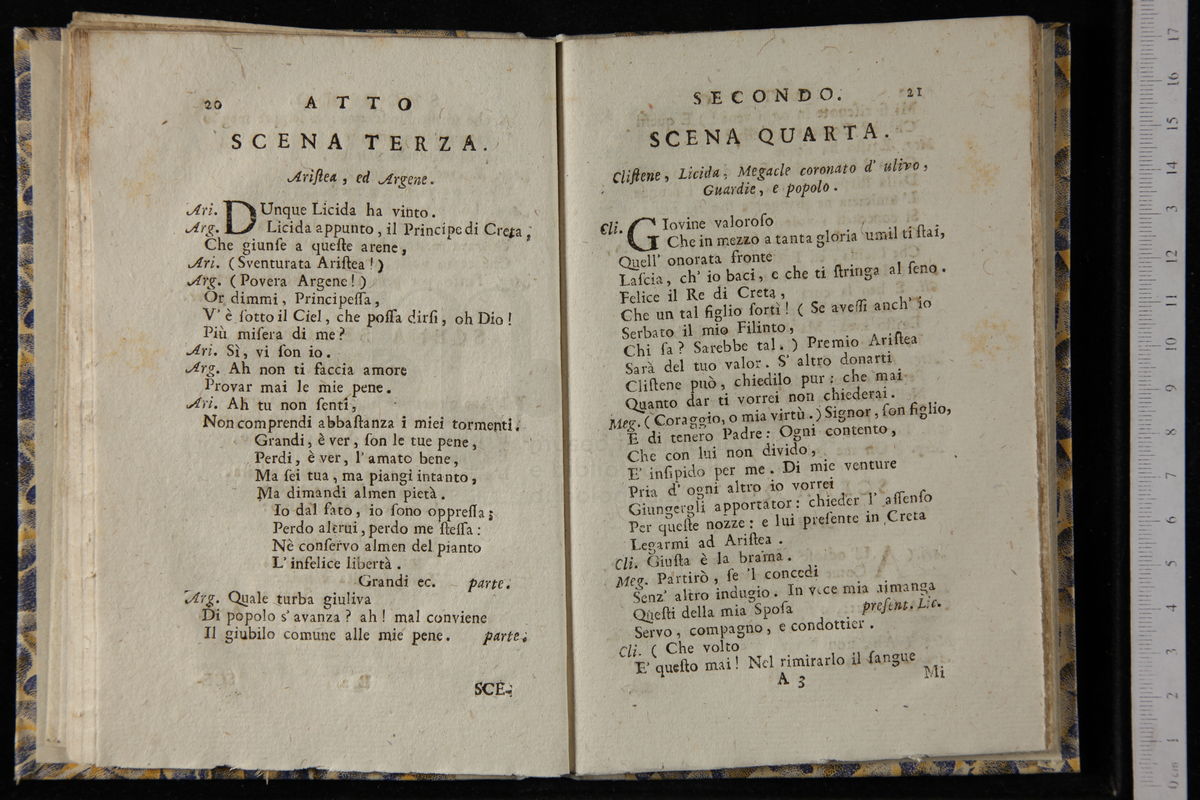 20 ATTO
SCENA TERZA.
Ariſtea, ed Argene.
Ari. DUnque Licida ha vinto.
Arg. Licida appunto, il Principe di Creta,
Che giunſe a queſte arene,
Ari. (Sventurata Ariſtea!)
Arg. (Povera Argene!)
Or dimmi, Principeſſa,
V' è ſotto il Ciel, che poſſa dirſi, oh Dio!
Più miſera di me?
Ari. Sì, vi ſon io.
Arg. Ah non ti faccia amore
Provar mai le mie pene.
Ari. Ah tu non ſenti,
Non comprendi abbaſtanza i miei tormenti.
Grandi, è ver, ſon le tue pene,
Perdi, è ver, l'amato bene,
Ma ſei tua, ma piangi intanto,
Ma dimandi almen pietà.
Io dal fato, io ſono oppreſſa;
Perdo altrui, perdo me ſteſſa:
Nè conſervo almen del pianto
L'infelice libertà.
Grandi ec. parte.
Arg. Quale turba giuliva
Di popolo s'avanza? ah! mal conviene
Il giubilo comune alle mie pene. parte.
SCE-
SECONDO. 21
SCENA QUARTA.
Cliſtene, Licida, Megacle coronato d' ulivo,
Guardie, e popolo.
Cli. GIovine valoroſo
Che in mezzo a tanta gloria umil ti ſtai,
Quell' onorata fronte
Laſcia, ch' io baci, e che ti ſtringa al ſeno.
Felice il Re di Creta,
Che un tal figlio ſortì! (Se aveſſi anch' io
Serbato il mio Filinto,
Chi ſa? Sarebbe tal.) Premio Ariſtea
Sarà del tuo valor. S' altro donarti
Cliſtene può, chiedilo pur: che mai
Quanto dar ti vorrei non chiederai.
Meg. (Coraggio, o mia virtù.) Signor, ſon figlio,
E di tenero Padre: Ogni contento,
Che con lui non divido,
E' inſipido per me. Di mie venture
Pria d' ogni altro io vorrei
Giungergli apportator: chieder l' aſſenſo
Per queſte nozze: e lui preſente in Creta
Legarmi ad Ariſtea.
Cli. Giuſta è la brama.
Meg. Partirò, ſe 'l concedi
Senz' altro indugio. In vece mia rimanga
Queſti della mia Spoſa preſent. Lic.
Servo, compagno, e condottier.
Cli. (Che volto
E' queſto mai! Nel rimirarlo il ſangue
A 3 Mi